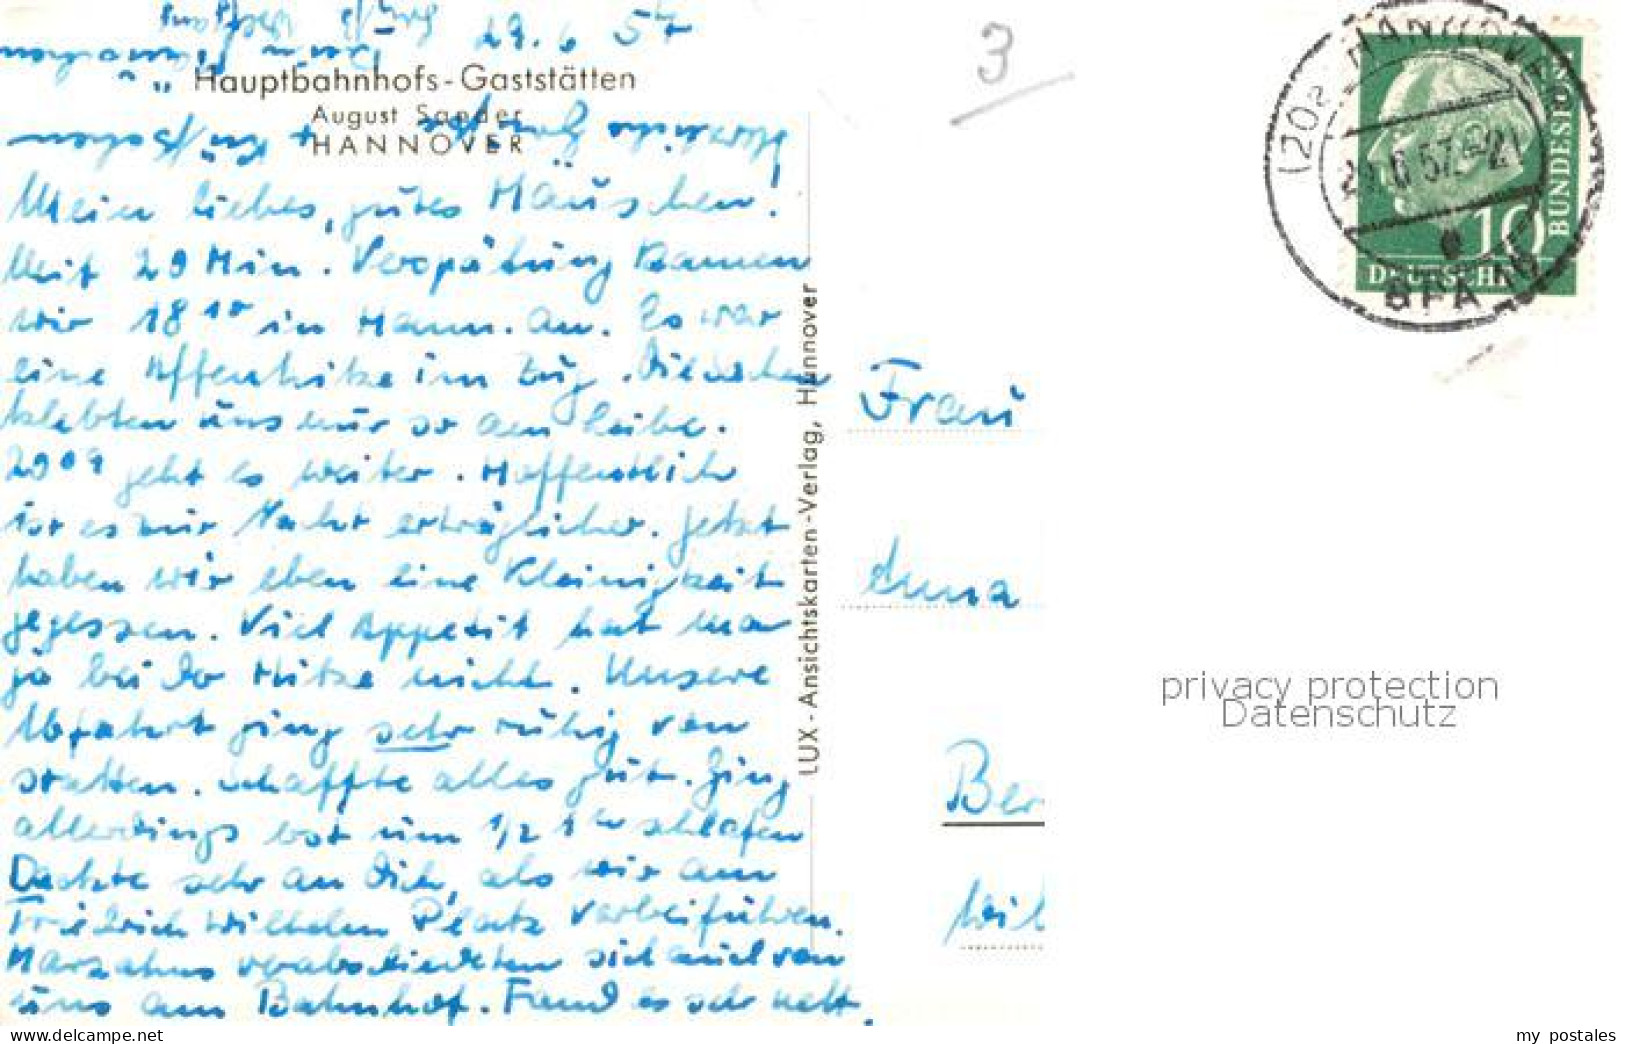 29.6.57
Hauptbahnhofs-Gaststätten
August Sander
HANNOVER
Mein liebes, gutes Mäuschen!
Mit 29 Min. Verspätung kamen
wir 18 10 in Hann. an. Es war
eine Affenhitze im Zug. Die Sachen
klebten uns nur so am Leibe.
20 09 geht es weiter. Hoffentlich
ist es zur Nacht erträglicher. Jetzt
haben wir eben eine Kleinigkeit
gegessen. Viel Appetit hat man
ja bei der Hitze nicht. Unsere
Abfahrt ging sehr ruhig von
statten. Schaffte alles gut. Ging
allerdings erst um 1/2 1 schlafen
Dachte sehr an Dich, als wir am
Friedrich Wilhelm Platz vorbeifuhren.
Marzahns verabschiedeten sich auch von
uns am Bahnhof. Fand es sehr nett.
LUX-Ansichtskarten-Verlag, Hannover
3
HANNOVER
(20a
57
21
DEUTSCHE
BUNDESPOST
10
Frau
Anna
Ber
privacy protection
Datenschutz
delcampe.net
my_postales